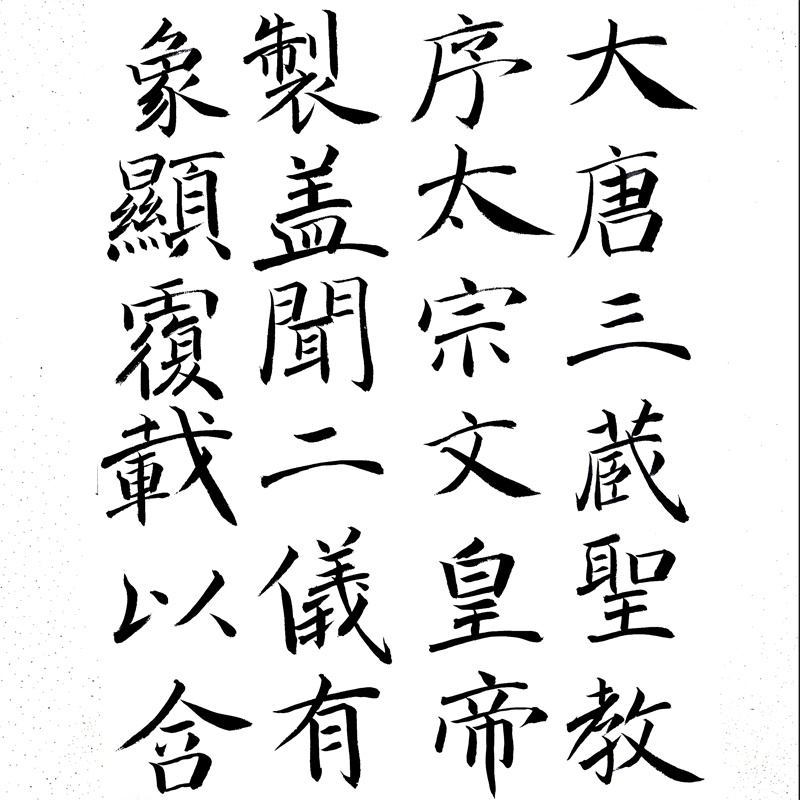 大唐三蔵聖教
序太宗文皇帝
製盖聞二儀有
象顯覆載以含